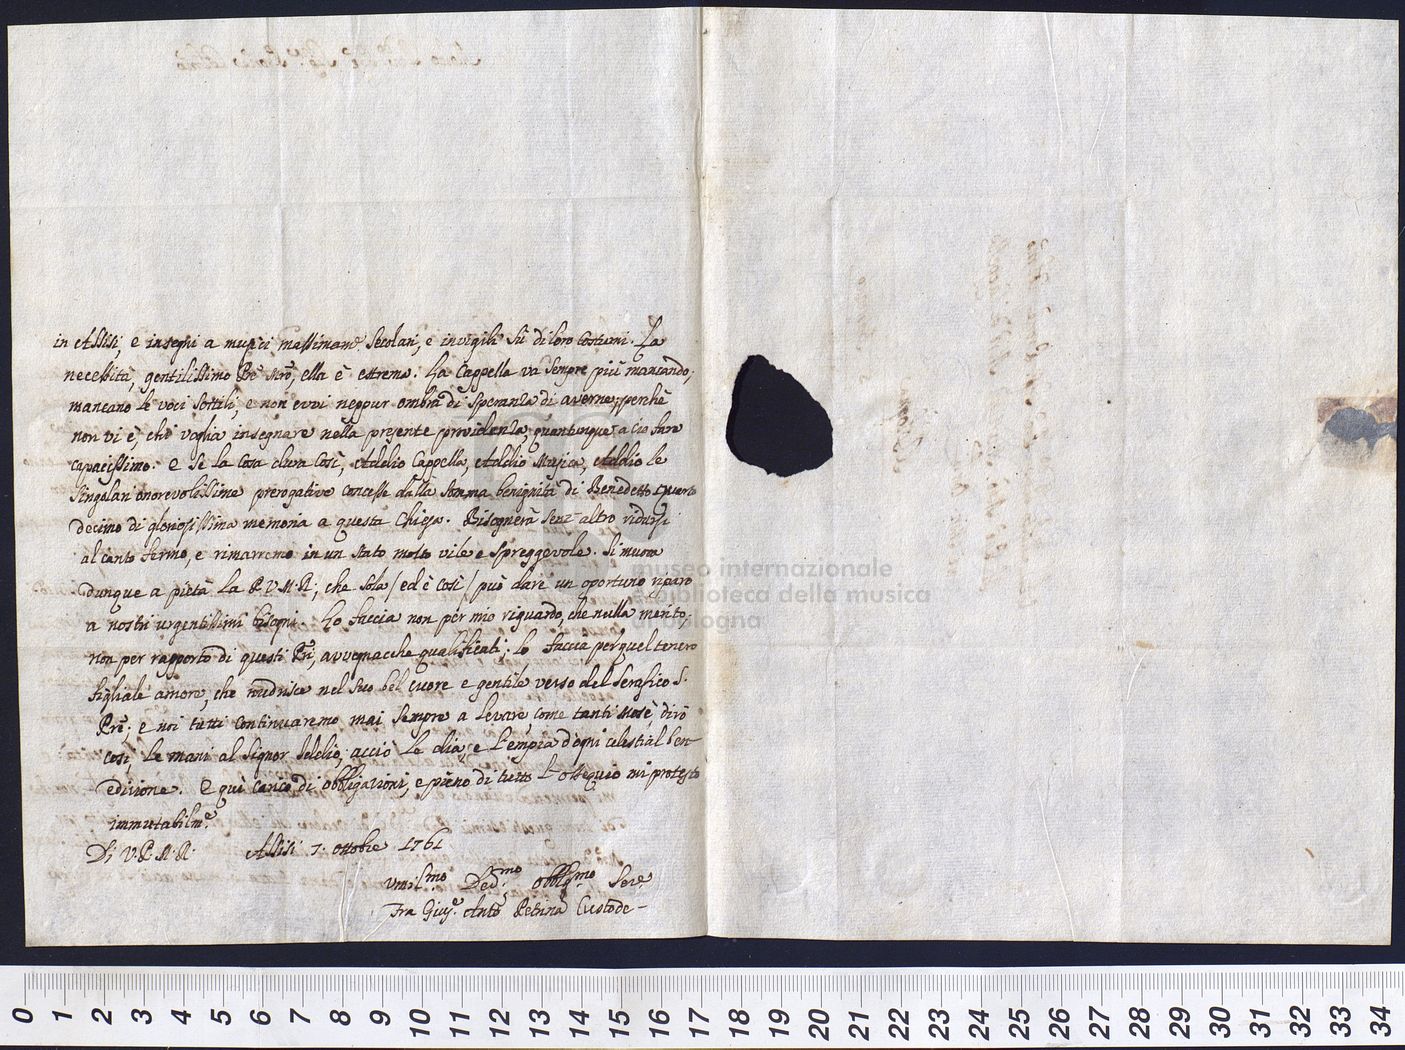 in Assisi, e insegni a musici massimam.e Secolari, e invigili sù di loro costumi. La
necessità, gentilissimo Pre Mro, ella è estrema. La Cappella va sempre più mancando;
mancano le voci sottili, e non evvi neppur ombra di speranza di averne; perchè
non vi è, chi voglia insegnare nella presente providenza, quantunque a ciò fare
capacissimo. E se la cosa dura così, Addio Cappella, Addio Musica, Addio le
singolari onorevolissime prerogative concesse dalla somma benignità di Benedetto Quarto
decimo di gloriosissima memoria a questa Chiesa. Bisognerà senz'altro ridursi
al canto fermo, e rimarremo in un stato molto vile e spreggevole. Si muova
dunque a pietà la P.V.M.R; che sola /ed è così/ può dare un oportuno riparo
a nostri urgentissimi bisogni. Lo faccia non per mio riguardo, che nulla merito,
non per rapporto di questi Pri, avvegnacche qualificati; lo faccia per quel tenero
figliale amore, che nudrisce nel suo bel cuore e gentile verso del Serafico S.
Pre; e noi tutti continuaremo mai sempre a levare, come tanti Mosè, dirò
così, le mani al Signor Iddio, acciò le dia, e l'empia d'ogni celestial ben
edizione. E qui carico di obbligazioni, e pieno di tutto l'ossequio mi protesto
immutabilm.e
Di V.P.M.R. Assisi 7. ottobre 1761
Umil.mo Dev.mo Obblig.mo Ser.e
Fra Gius.e Anto Petrina Custode -
museo internazionale
e biblioteca della musica
di bologna
0 1 2 3 4 5 6 7 8 9 10 11 12 13 14 15 16 17 18 19 20 21 22 23 24 25 26 27 28 29 30 31 32 33 34